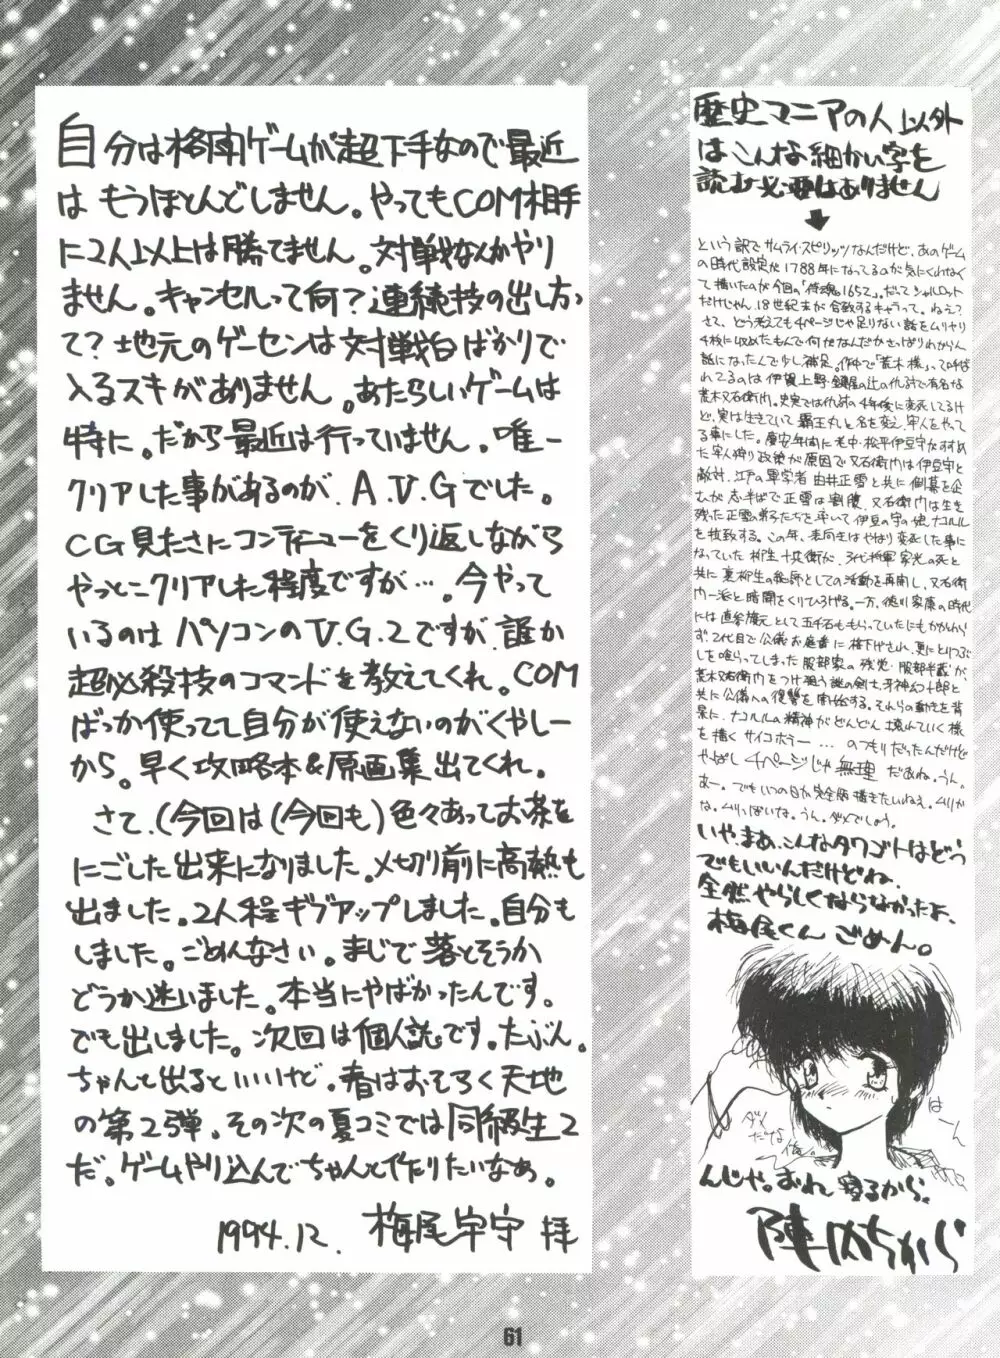 自分は格闘ゲームが超下手なので最近
は もうほとんどしません。やってもCOM相手
に2人以上は勝てません。対戦なんかやり
ません。キャンセルって何？連続技の出し方っ
て？地元のゲーセンは対戦台ばかりで
入るスキがありません。あたらしいゲームは
特に。だから最近は行っていません。唯一
クリアした事があるのが、A.V.Gでした。
CG見たさにコンティニューをくり返しながら
やっとこクリアした程度ですが…。今やって
いるのは パソコンのV.G.2ですが、誰か
超必殺技のコマンドを教えてくれ。COM
ばっか使ってて自分が使えないのがくやしー
から。早く攻略本&原画集出てくれ。
さて、(今回は(今回も)色々あってお茶を
にごした出来になりました。〆切り前に高熱も
出ました。2人程ギブアップしました。自分も
しました。ごめんなさい。まじで落とそうか
どうか迷いました。本当にやばかったんです。
でも出しました。次回は個人誌です。たぶん。
ちゃんと出るといいけど。春はおそらく天地
の第2弾。その次の夏コミでは同級生2
だ。ゲームやり込んでちゃんと作りたいなぁ。
1994.12. 梅尾宇守 拝
歴史マニアの人以外
はこんな細かい字を
読む必要はありません
という訳でサムライ・スピリッツなんだけど、あのゲーム
の時代設定が1788年になってるのが気にくわなく
て描いたのが今回の「侍魂1652」。だってシャルロット
だけじゃん、18世紀末が合致するキャラって。ねぇ？
さて、どう考えても4ページじゃ足りない話をムリヤリ
4枚に収めたもんで何がなんだかさっぱりわからん
話になったんで少し補足。作中で「荒木様」って呼ば
れてるのは伊賀上野・鍵屋の辻の仇討で有名な
荒木又右衛門。史実では仇討の4年後に変死してるけ
ど、実は生きていて覇王丸と名を変え、牢人をやって
る事にした。慶安年間に老中・松平伊豆守がすすめ
た牢人狩り政策が原因で又右衛門は伊豆守と
敵対、江戸の軍学者 由井正雪と共に倒幕を企
むが志半ばで正雪は割腹、又右衛門は生き
残った正雪の弟子たちを率いて伊豆の守の娘、ナコルル
を拉致する。この年、表向きはやはり変死した事に
なっていた柳生十兵衛が、3代将軍家光の死と
共に裏柳生の総帥としての活動を再開し、又右衛
門一派と暗闘をくりひろげる。一方、徳川家康の時代
には直参旗元として五千石ももらっていたにもかかわら
ず、2代目で公儀お庭番に格下げされ、更にとりつぶ
しを喰らってしまった服部家の残党・服部半蔵が、
荒木又右衛門をつけ狙う謎の剣士、牙神幻十郎と
共に公儀への復讐を開始する。それらの動きを背
景に、ナコルルの精神がどんどん壊れていく様
を描くサイコホラー…のつもりだったんだけど
やっぱし4ページじゃ無理だあね。うん。
あー。でもいつの日か完全版描きたいねえ。ムリか
な。ムリっぽいな。うん。ダメでしょう。
いや、まあ、こんなタワゴトはどう
でもいいんだけどね、
全然やらしくならなかったよ、
梅尾くん ごめん。
ダメ
だな
俺。
はーん
んじゃ。おれ 寝るから。
61